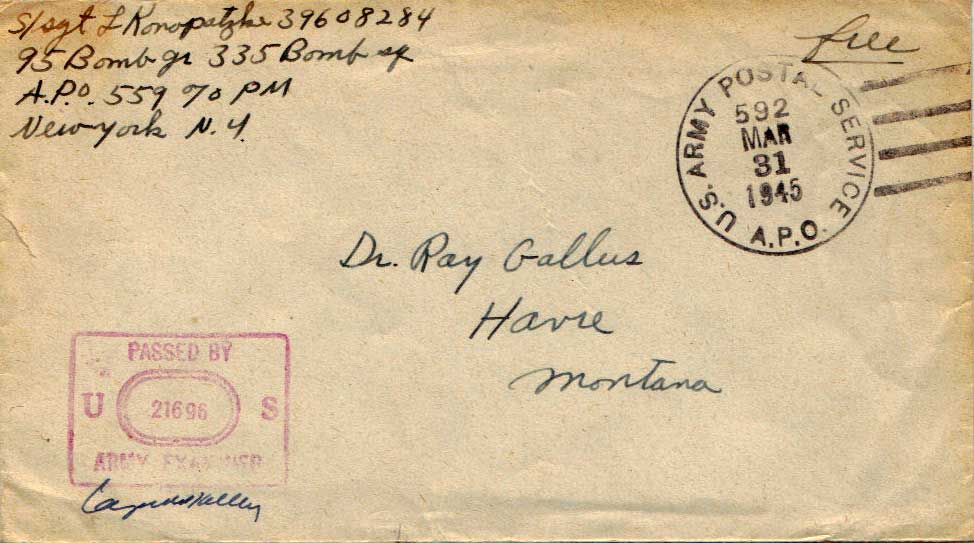 S/sgt L Konopatzke 39608284
95 Bomb gr 335 Bomb sq
A.P.O. 559 % PM
New York N.Y.
free
U.S. ARMY POSTAL SERVICE
592
MAR
31
1945
A.P.O.
Dr. Ray Gallus
Havre
Montana
PASSED BY
U 21696 S
ARMY EXAMINER